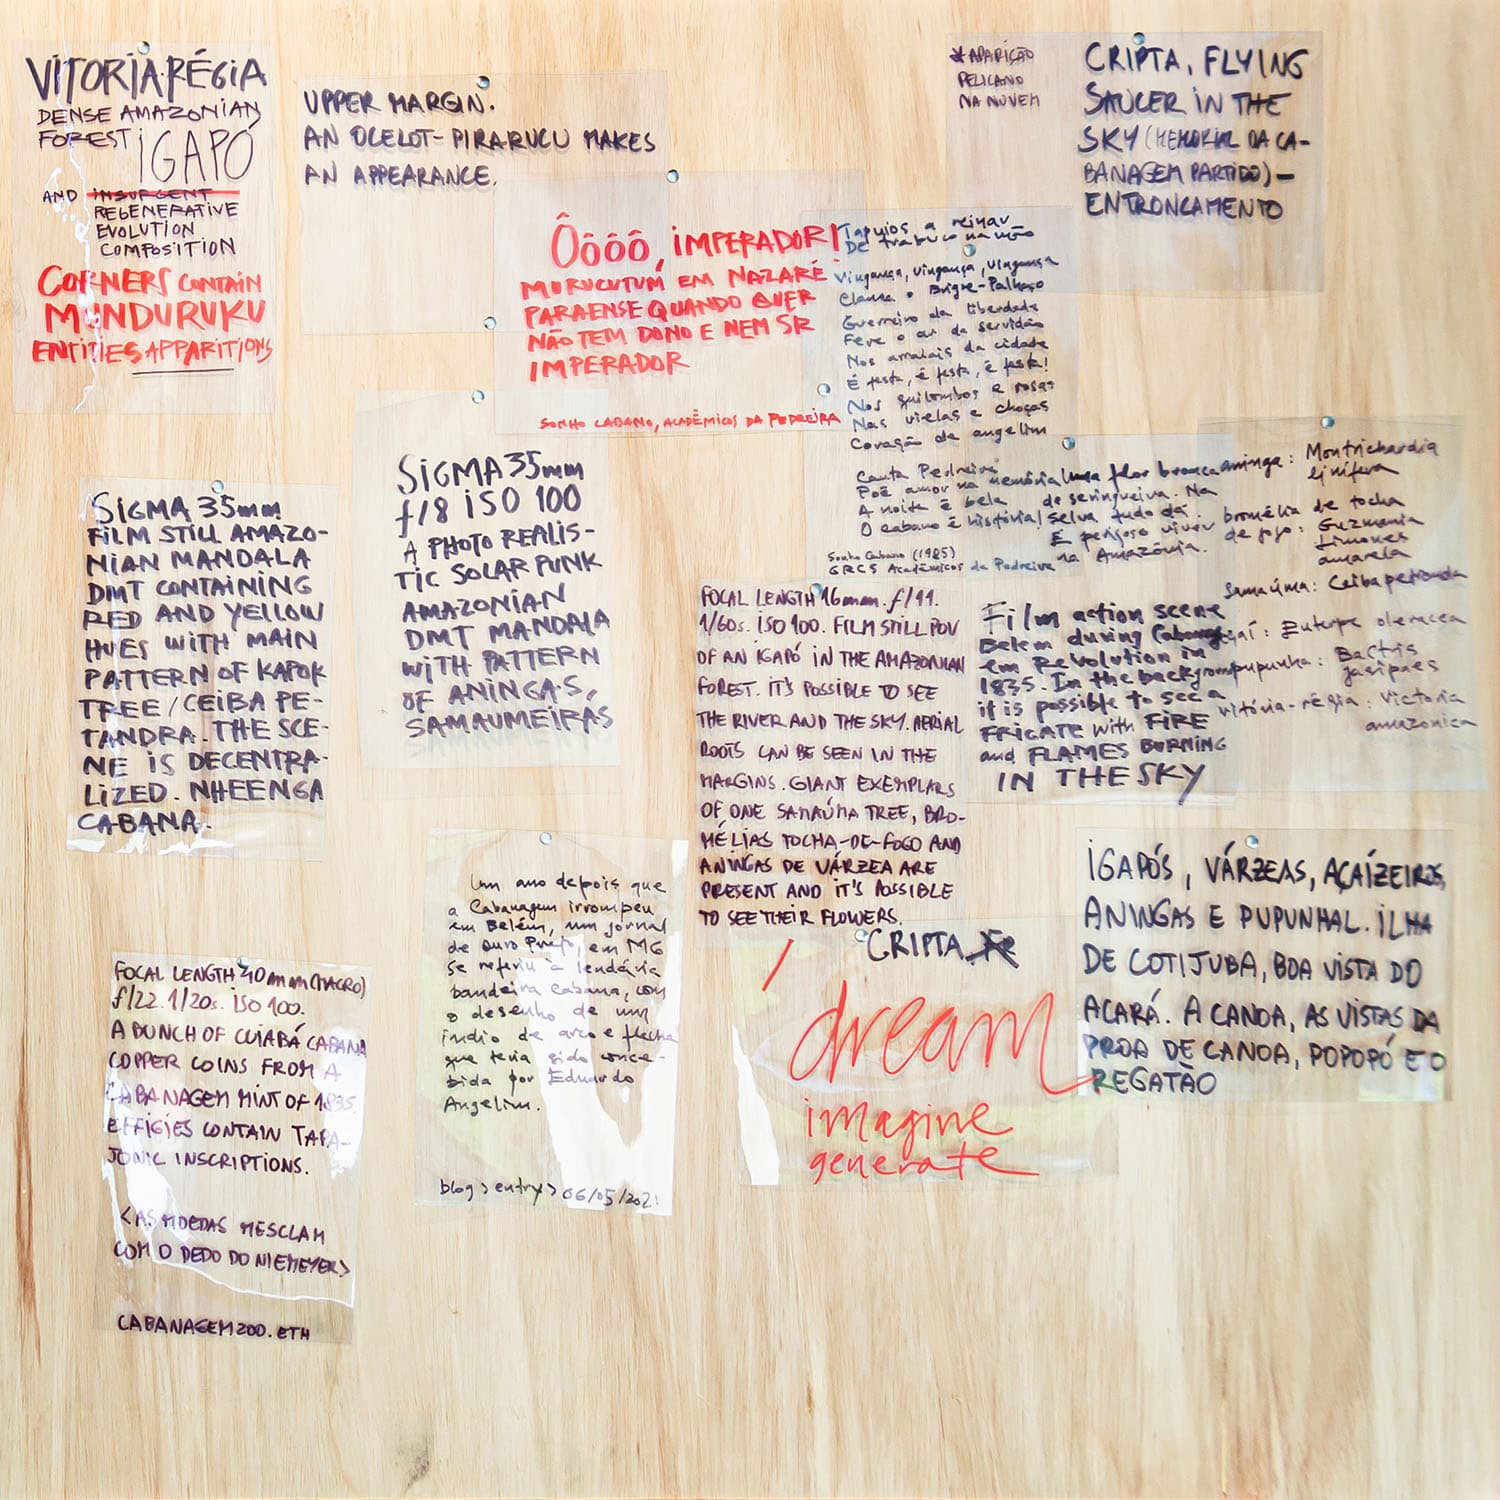 VITORIA RÉGIA
DENSE AMAZONIAN
FOREST IGAPÓ
AND INSURGENT
REGENERATIVE
EVOLUTION
COMPOSITION
CORNERS CONTAIN
MUNDURUKU
ENTITIES APPARITIONS
UPPER MARGIN.
AN OCELOT-PIRARUCU MAKES
AN APPEARANCE.
*APARIÇÃO
PELICANO
NA NUVEM
CRIPTA, FLYING
SAUCER IN THE
SKY (MEMORIAL DA CA-
BANAGEM PARTIDO) —
ENTRONCAMENTO
Ôôôô, IMPERADOR!
MURUCUTUM EM NAZARÉ
PARAENSE QUANDO QUER
NÃO TEM DONO E NEM SR
IMPERADOR
SONHO CABANO, ACADÊMICOS DA PEDREIRA
Tapuios a reinar
De trabuco na mão
Vingança, vingança, vingança
Clama o Brigue-Palhaço
Guerreiro da liberdade
Feve o ar da servidão
Nos arraiais da cidade
É festa, é festa, é festa!
Nos quilombos e rosas
Nas vielas e choças
Coração de angelim
Canta Pedreira
Põe amor na memória
A noite é bela
O cabano é história!
Sonho Cabano (1985)
GRCS Acadêmicos da Pedreira
Uma flor branca
de seringueira. Na
selva tudo dá.
É perigoso viver
na Amazônia.
aninga: Montrichardia
linifera
bromélia de tocha
de fogo: Guzmania
Limones
amarela
Samaúma: Ceiba petranda
açaí: Euterpe oleracea
pupunha: Bactris
gasipaes
vitória-régia: Victoria
amazonica
SIGMA 35mm
FILM STILL AMAZO-
NIAN MANDALA
DMT CONTAINING
RED AND YELLOW
HUES WITH MAIN
PATTERN OF KAPOK
TREE/CEIBA PE-
TANDRA. THE SCE-
NE IS DECENTRA-
LIZED. NHEENGA
CABANA.
SIGMA 35mm
f/8 ISO 100
A PHOTO REALIS-
TIC SOLARPUNK
AMAZONIAN
DMT MANDALA
WITH PATTERN
OF ANINGAS,
SAMAUMEIRAS
FOCAL LENGTH 16mm. f/11.
1/60s. ISO 100. FILM STILL POV
OF AN IGAPÓ IN THE AMAZONIAN
FOREST. IT'S POSSIBLE TO SEE
THE RIVER AND THE SKY. AERIAL
ROOTS CAN BE SEEN IN THE
MARGINS. GIANT EXEMPLARS
OF ONE SAMAÚMA TREE, BRO-
MÉLIAS TOCHA-DE-FOGO AND
ANINGAS DE VÁRZEA ARE
PRESENT AND IT'S POSSIBLE
TO SEE THEIR FLOWERS.
Film action scene
Belem during Cabanag
em Revolution in
1835. In the background
it is possible to see a
FRIGATE with FIRE
and FLAMES BURNING
IN THE SKY
CRIPTA
/dream
imagine
generate
IGAPÓS, VÁRZEAS, AÇAÍZEIROS,
ANINGAS E PUPUNHAL. ILHA
DE COTIJUBA, BOA VISTA DO
ACARÁ. A CANOA, AS VISTAS DA
PROA DE CANOA, POPOPÓ E O
REGATÃO
Um ano depois que
a Cabanagem irrompeu
em Belém, um jornal
de Ouro Preto, em MG
se referiu à lendária
bandeira Cabana, com
o desenho de um
índio de arco e flecha
que teria sido conce-
bida por Eduardo
Angelim.
blog > entry > 06/05/202
FOCAL LENGTH 40mm (MACRO)
f/22. 1/20s. ISO 100.
A BUNCH OF CUIABÁ CABANA
COPPER COINS FROM A
CABANAGEM MINT OF 1835.
EFFIGIES CONTAIN TAPA-
JONIC INSCRIPTIONS.
<AS MOEDAS MESCLAM
COM O DEDO DO NIEMEYER>
CABANAGEM200.ETH